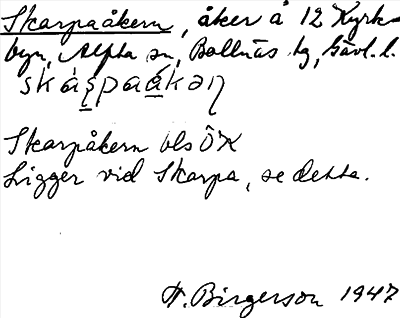 Skarpaåkern, åker å 12 Kyrk-
byn, Alfta sn, Bollnäs tg, Gävl. l.
skáʂpaåkəɳ
Skarpåkern bls ÖK
Ligger vid Skarpa, se detta.
F. Birgerson 1947